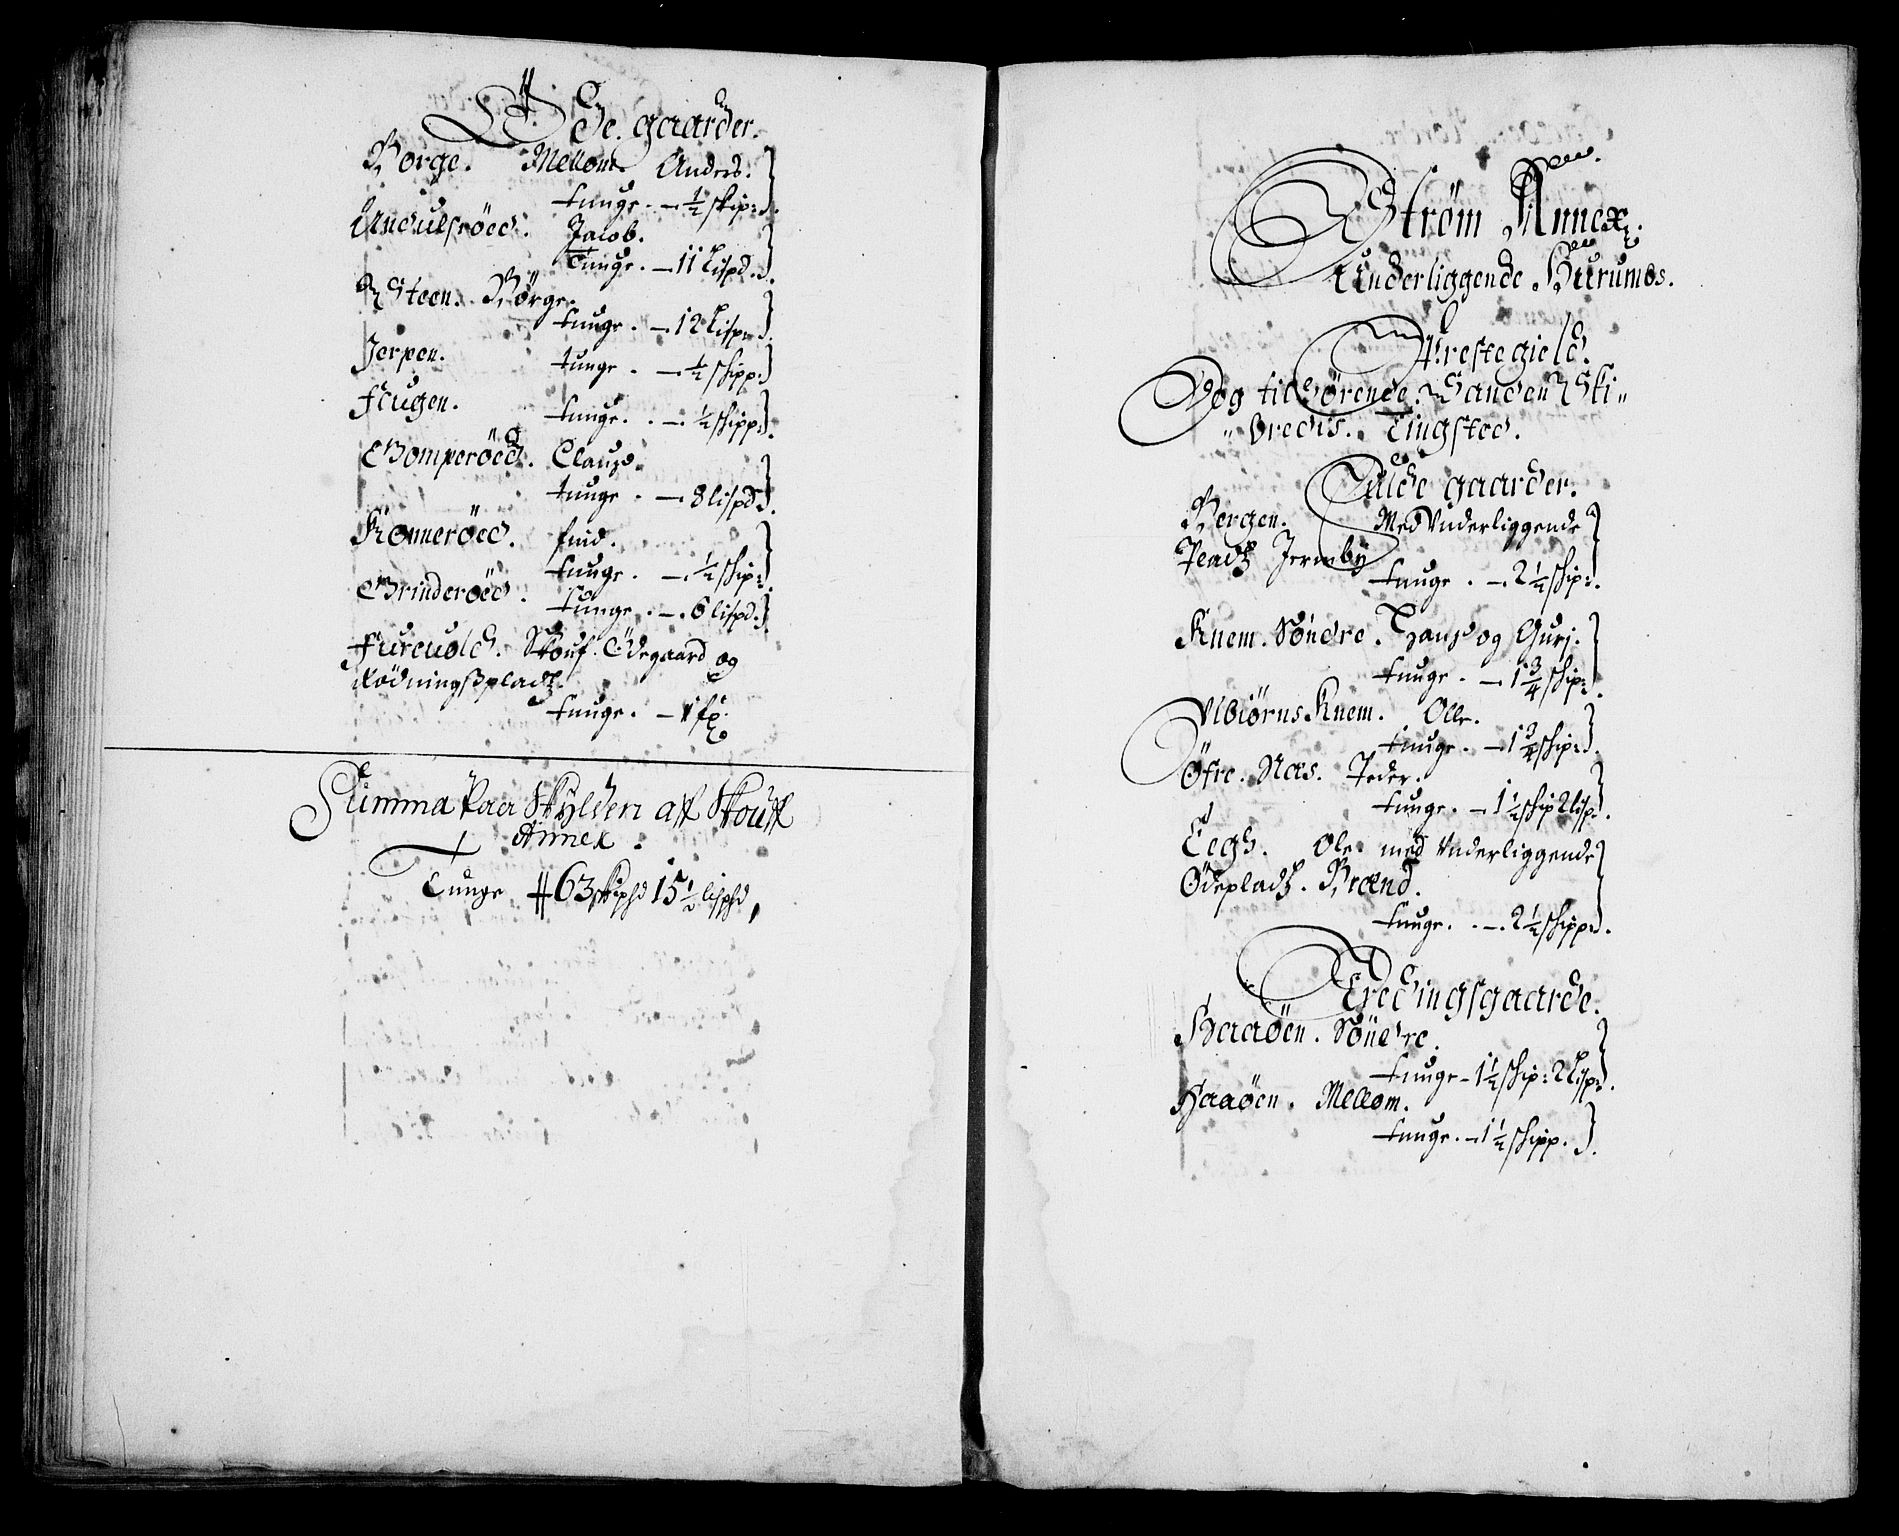 Öde. gaarder.
Borge. Mellom Anders.
tunge. — ½ skip:
Undulsröed. Jacob.
tunge. — 11 Lispd.
Steen. Börge.
tunge. — 12 Lisp:
Jerpen.
tunge. — ½ schipp:
Flugen.
tunge. — ½ schipp:
Gomperöed. Clauss.
tunge. — 8 lispd
Konneröed. smd.
tunge. — ½ schip:
Grinderöed.
tunge. — 6 lispd.
Fureuold. Skouf. Ödegaard og
Rödningsspladtz.
tunge. — 1 fz.
Summa Paa Skylden aff Skouff
Annex.
Tunge 63 skiphd 15½ lisphd,
Strøm Annex.
Underliggende Hurumbs.
Prestegield.
og tilhörende Sanden Ski„
„bredis. Tingsted.
Fulde gaarder.
Bergen. Med Vnderliggende
Pladtz Jermbÿ
tunge. — 2½ schip:
Knem. Söndre. Hans og Gurj.
tunge. — 1¾ schip:
Vlbiørns Knem. Olle.
tunge. — 1¾ schip:
Öfre. Næs. Peder.
tunge. — 1½ schip 2 lisp:
Eegh. Ole. med Vnderliggende
Ödepladtz. Brænd.
tunge. — 2½ schipp:
Tredingsgaarde.
Haaöen. Söndre.
tunge - 1½ schip: 2 Lisp:
Haaöen. Mellom.
tunge. — 1½ schipp.